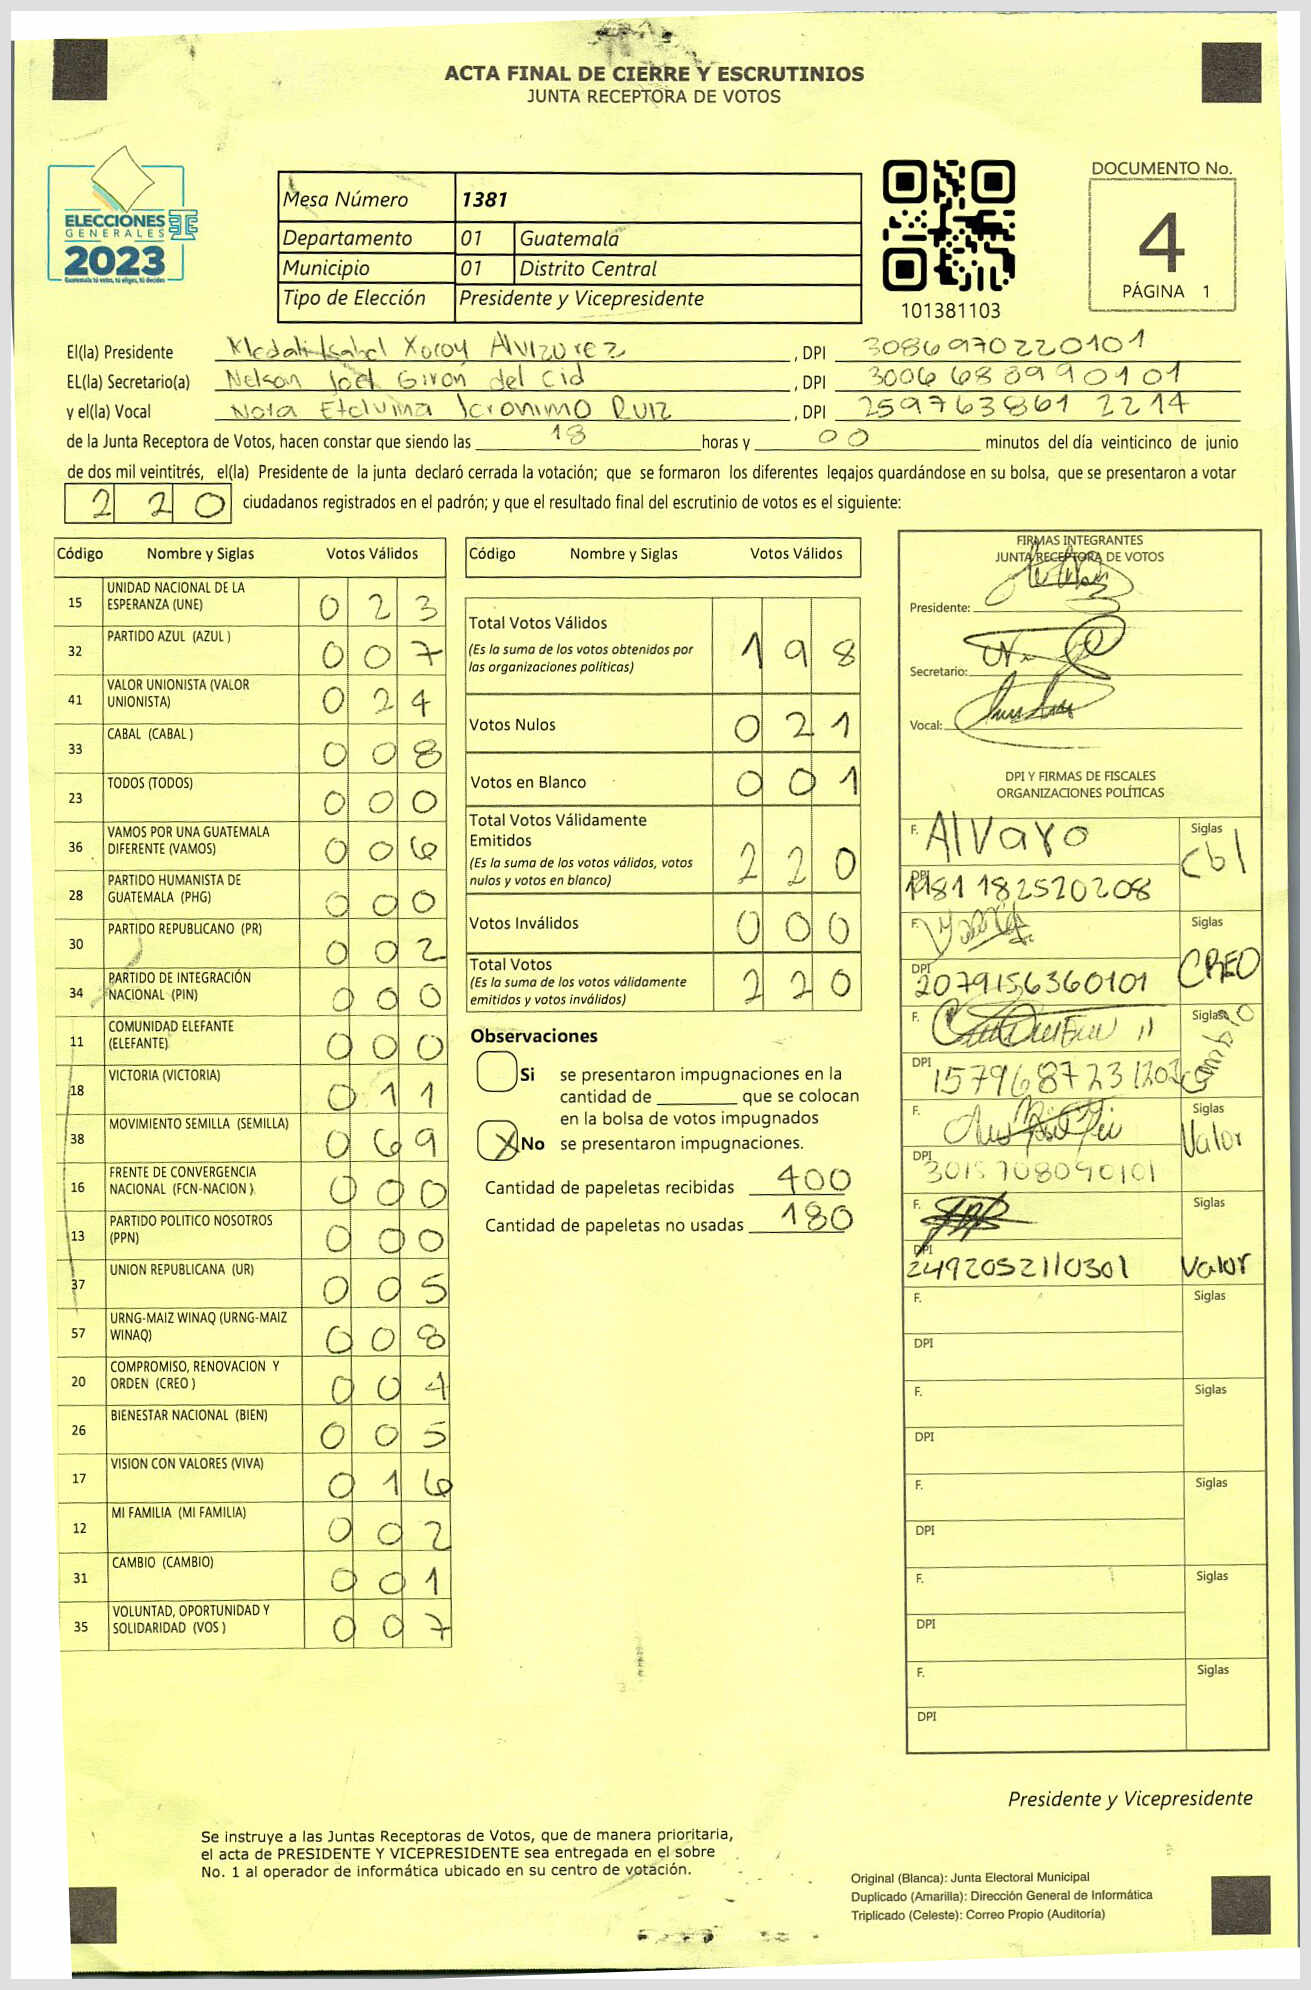 ACTA FINAL DE CIERRE Y ESCRUTINIOS
JUNTA RECEPTORA DE VOTOS
ELECCIONES
GENERALES
2023
Guatemala tú votas, tú eliges, tú decides
Mesa Número 1381
Departamento 01 Guatemala
Municipio 01 Distrito Central
Tipo de Elección Presidente y Vicepresidente
101381103
DOCUMENTO No.
4
PÁGINA 1
El(la) Presidente Xoroy Alvizurez , DPI 3086970220101
EL(la) Secretario(a) Nelson Joel Giron del Cid , DPI 3006688990101
y el(la) Vocal Jeronimo Ruiz , DPI 259763861 2214
de la Junta Receptora de Votos, hacen constar que siendo las 18 horas y 00 minutos del día veinticinco de junio
de dos mil veintitrés, el(la) Presidente de la junta declaró cerrada la votación; que se formaron los diferentes legajos guardándose en su bolsa, que se presentaron a votar
2 2 0 ciudadanos registrados en el padrón; y que el resultado final del escrutinio de votos es el siguiente:
Código Nombre y Siglas Votos Válidos
15 UNIDAD NACIONAL DE LA ESPERANZA (UNE) 0 2 3
32 PARTIDO AZUL (AZUL ) 0 0 7
41 VALOR UNIONISTA (VALOR UNIONISTA) 0 2 4
33 CABAL (CABAL ) 0 0 8
23 TODOS (TODOS) 0 0 0
36 VAMOS POR UNA GUATEMALA DIFERENTE (VAMOS) 0 0 6
28 PARTIDO HUMANISTA DE GUATEMALA (PHG) 0 0 0
30 PARTIDO REPUBLICANO (PR) 0 0 2
34 PARTIDO DE INTEGRACIÓN NACIONAL (PIN) 0 0 0
11 COMUNIDAD ELEFANTE (ELEFANTE) 0 0 0
18 VICTORIA (VICTORIA) 0 1 1
38 MOVIMIENTO SEMILLA (SEMILLA) 0 6 9
16 FRENTE DE CONVERGENCIA NACIONAL (FCN-NACION ) 0 0 0
13 PARTIDO POLITICO NOSOTROS (PPN) 0 0 0
37 UNION REPUBLICANA (UR) 0 0 5
57 URNG-MAIZ WINAQ (URNG-MAIZ WINAQ) 0 0 8
20 COMPROMISO, RENOVACION Y ORDEN (CREO ) 0 0 4
26 BIENESTAR NACIONAL (BIEN) 0 0 5
17 VISION CON VALORES (VIVA) 0 1 6
12 MI FAMILIA (MI FAMILIA) 0 0 2
31 CAMBIO (CAMBIO) 0 0 1
35 VOLUNTAD, OPORTUNIDAD Y SOLIDARIDAD (VOS ) 0 0 7
Código Nombre y Siglas Votos Válidos
Total Votos Válidos
(Es la suma de los votos obtenidos por
las organizaciones políticas) 1 9 8
Votos Nulos 0 2 1
Votos en Blanco 0 0 1
Total Votos Válidamente
Emitidos
(Es la suma de los votos válidos, votos
nulos y votos en blanco) 2 2 0
Votos Inválidos 0 0 0
Total Votos
(Es la suma de los votos válidamente
emitidos y votos inválidos) 2 2 0
Observaciones
Si se presentaron impugnaciones en la
cantidad de ________ que se colocan
en la bolsa de votos impugnados
X No se presentaron impugnaciones.
Cantidad de papeletas recibidas 400
Cantidad de papeletas no usadas 180
FIRMAS INTEGRANTES
JUNTA RECEPTORA DE VOTOS
Presidente:
Secretario:
Vocal:
DPI Y FIRMAS DE FISCALES
ORGANIZACIONES POLÍTICAS
F. Alvaro Siglas
DPI 1981 182520208 Cbl
F. Siglas
DPI 2079156360101 CREO
F. Siglas
DPI 1579687231203 Cambio
F. Siglas
DPI 3015708090101 Valor
F. Siglas
DPI 2492052110301 Valor
F. Siglas
DPI
F. Siglas
DPI
F. Siglas
DPI
F. Siglas
DPI
F. Siglas
DPI
Presidente y Vicepresidente
Se instruye a las Juntas Receptoras de Votos, que de manera prioritaria,
el acta de PRESIDENTE Y VICEPRESIDENTE sea entregada en el sobre
No. 1 al operador de informática ubicado en su centro de votación.
Original (Blanca): Junta Electoral Municipal
Duplicado (Amarilla): Dirección General de Informática
Triplicado (Celeste): Correo Propio (Auditoría)